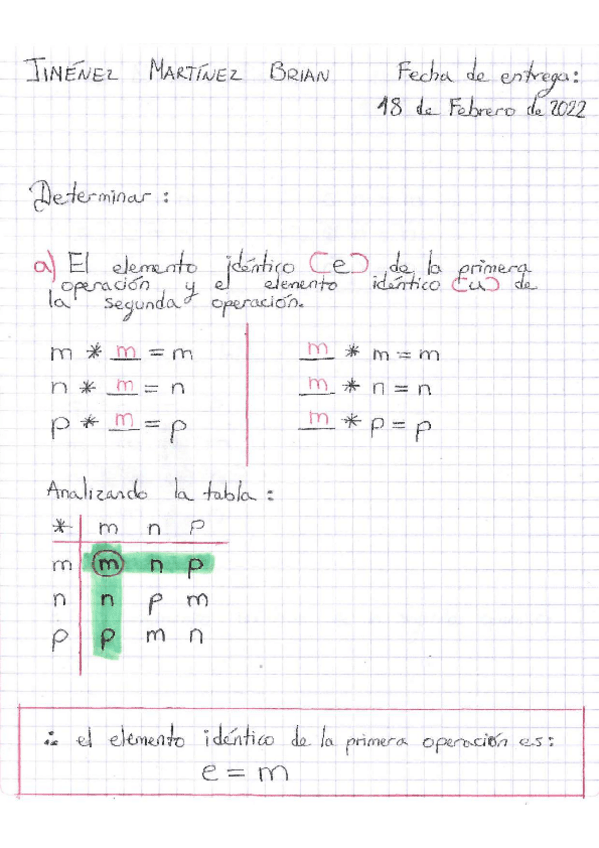 JIMÉNEZ MARTÍNEZ BRIAN Fecha de entrega:
18 de Febrero de 2022
Determinar :
a) El elemento idéntico (e) de la primera
operación y el elemento idéntico (u) de
la segunda operación.
m * m = m m * m = m
n * m = n m * n = n
p * m = p m * p = p
Analizando la tabla :
* m n p
m m n p
n n p m
p p m n
∴ el elemento idéntico de la primera operación es:
e = m